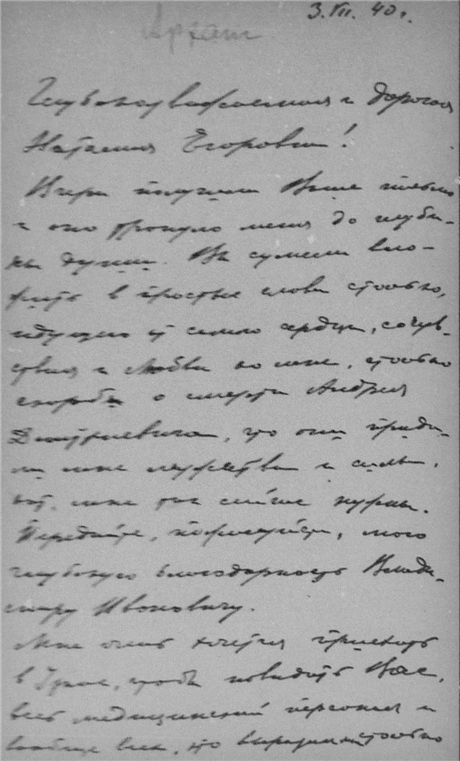 3.VII.40г.
Архат
Глубокоуважаемая и дорогая
Наталия Егоровна!
Вчера получил Ваше письмо
и оно тронуло меня до глуби-
ны души. Вы сумели вло-
жить в простые слова столько,
идущего от самого сердца, сочув-
ствия и любви ко мне, столько
скорби о смерти Андрея
Дмитриевича, что они прида-
ли мне мужества и силы,
мне так сейчас нужны.
Передайте, пожалуйста, мою
глубокую благодарность Влади-
миру Ивановичу.
Мне очень хочется приехать
в чтобы повидать Вас,
весь медицинский персонал и
вообще всех, кто выразили столько